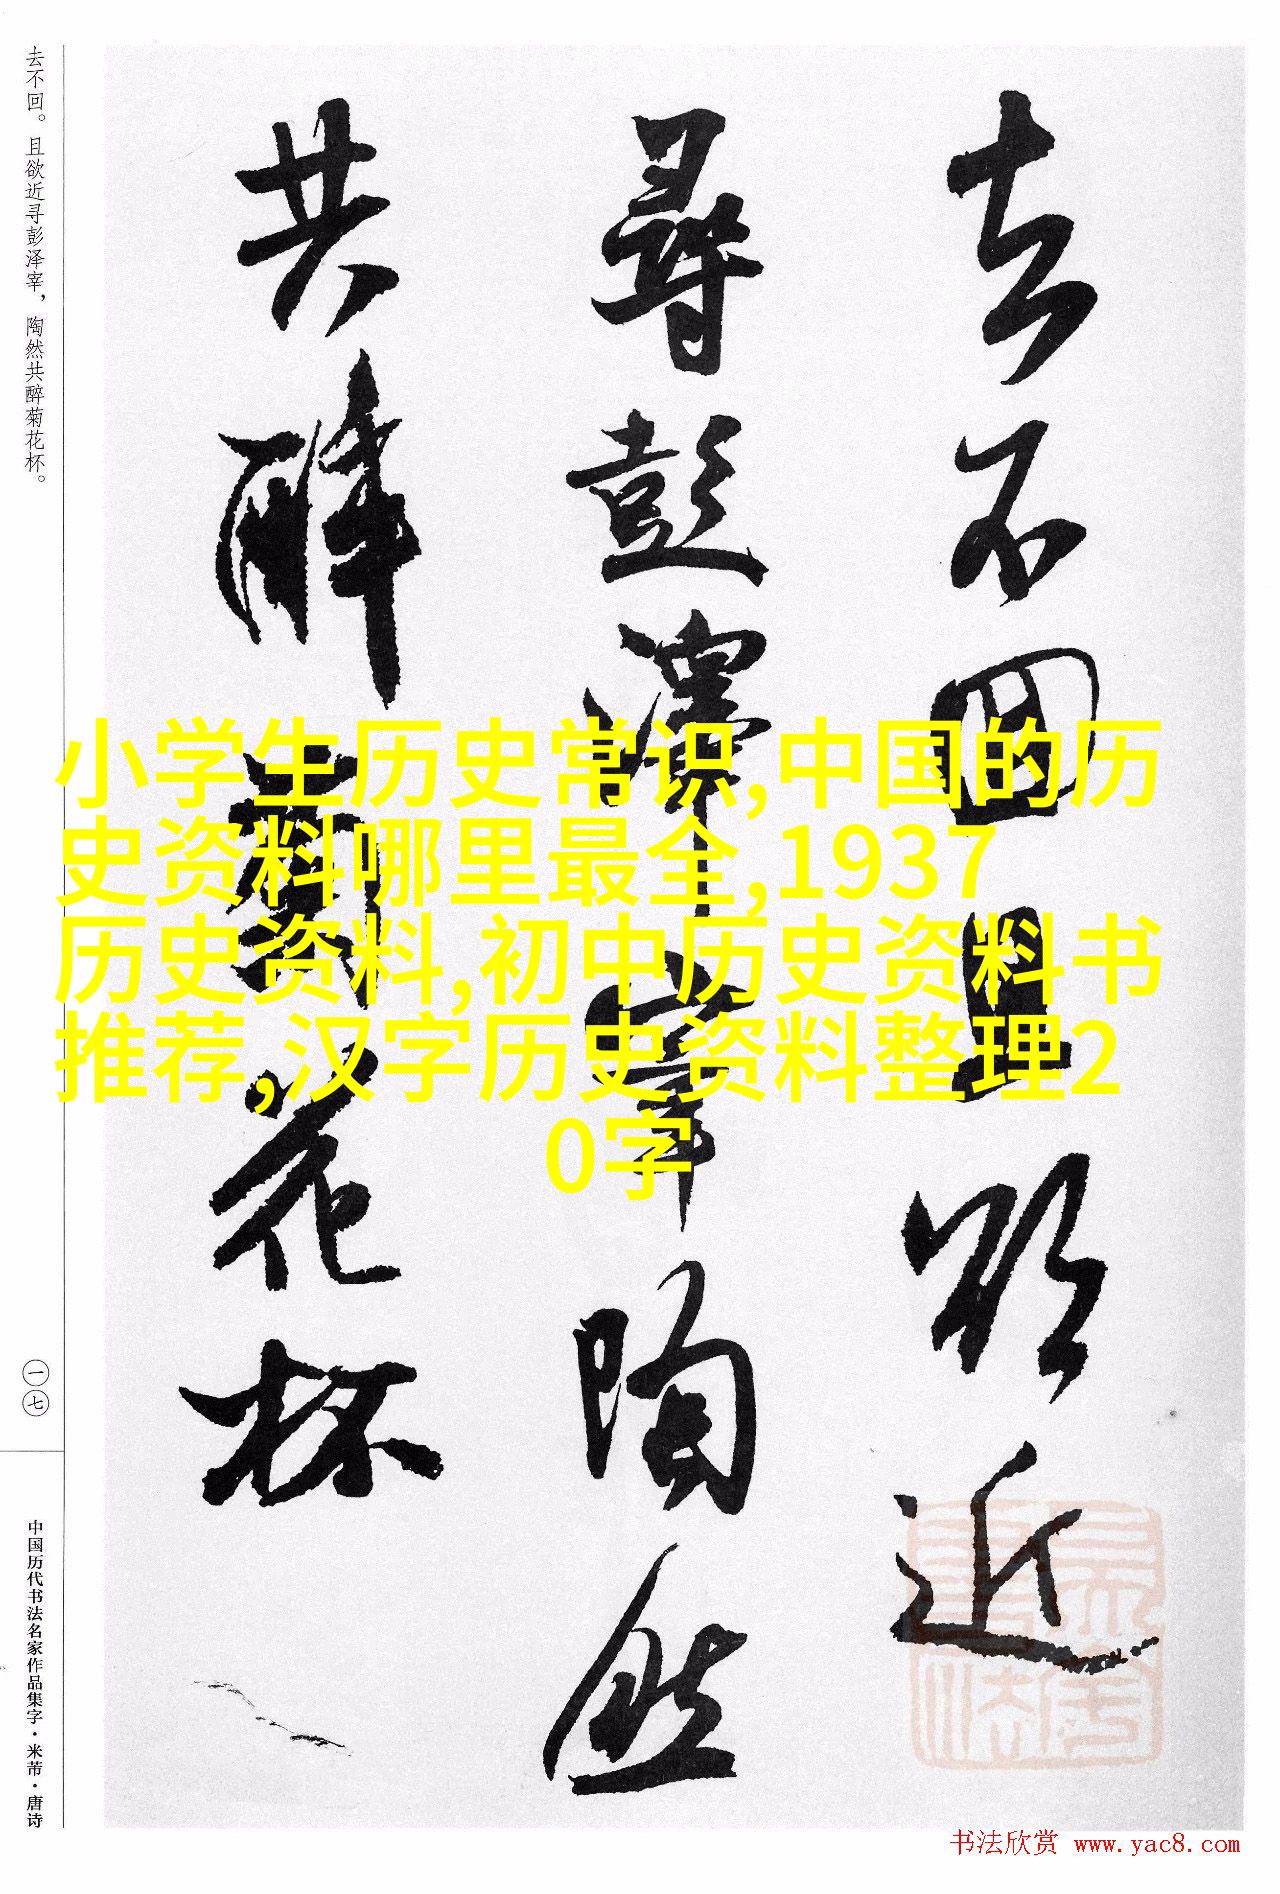 去不回。且欲近寻彭泽宰，陶然共醉菊花杯。
去不回且欲近
尋彭澤宰陶然
共醉菊花杯
小学生历史常识,中国的历
史资料哪里最全,1937
历史资料,初中历史资料书
推荐,汉字历史资料整理2
0字
一七
中国历代书法名家作品集字·米芾·唐诗
书法欣赏 www.yac8.com